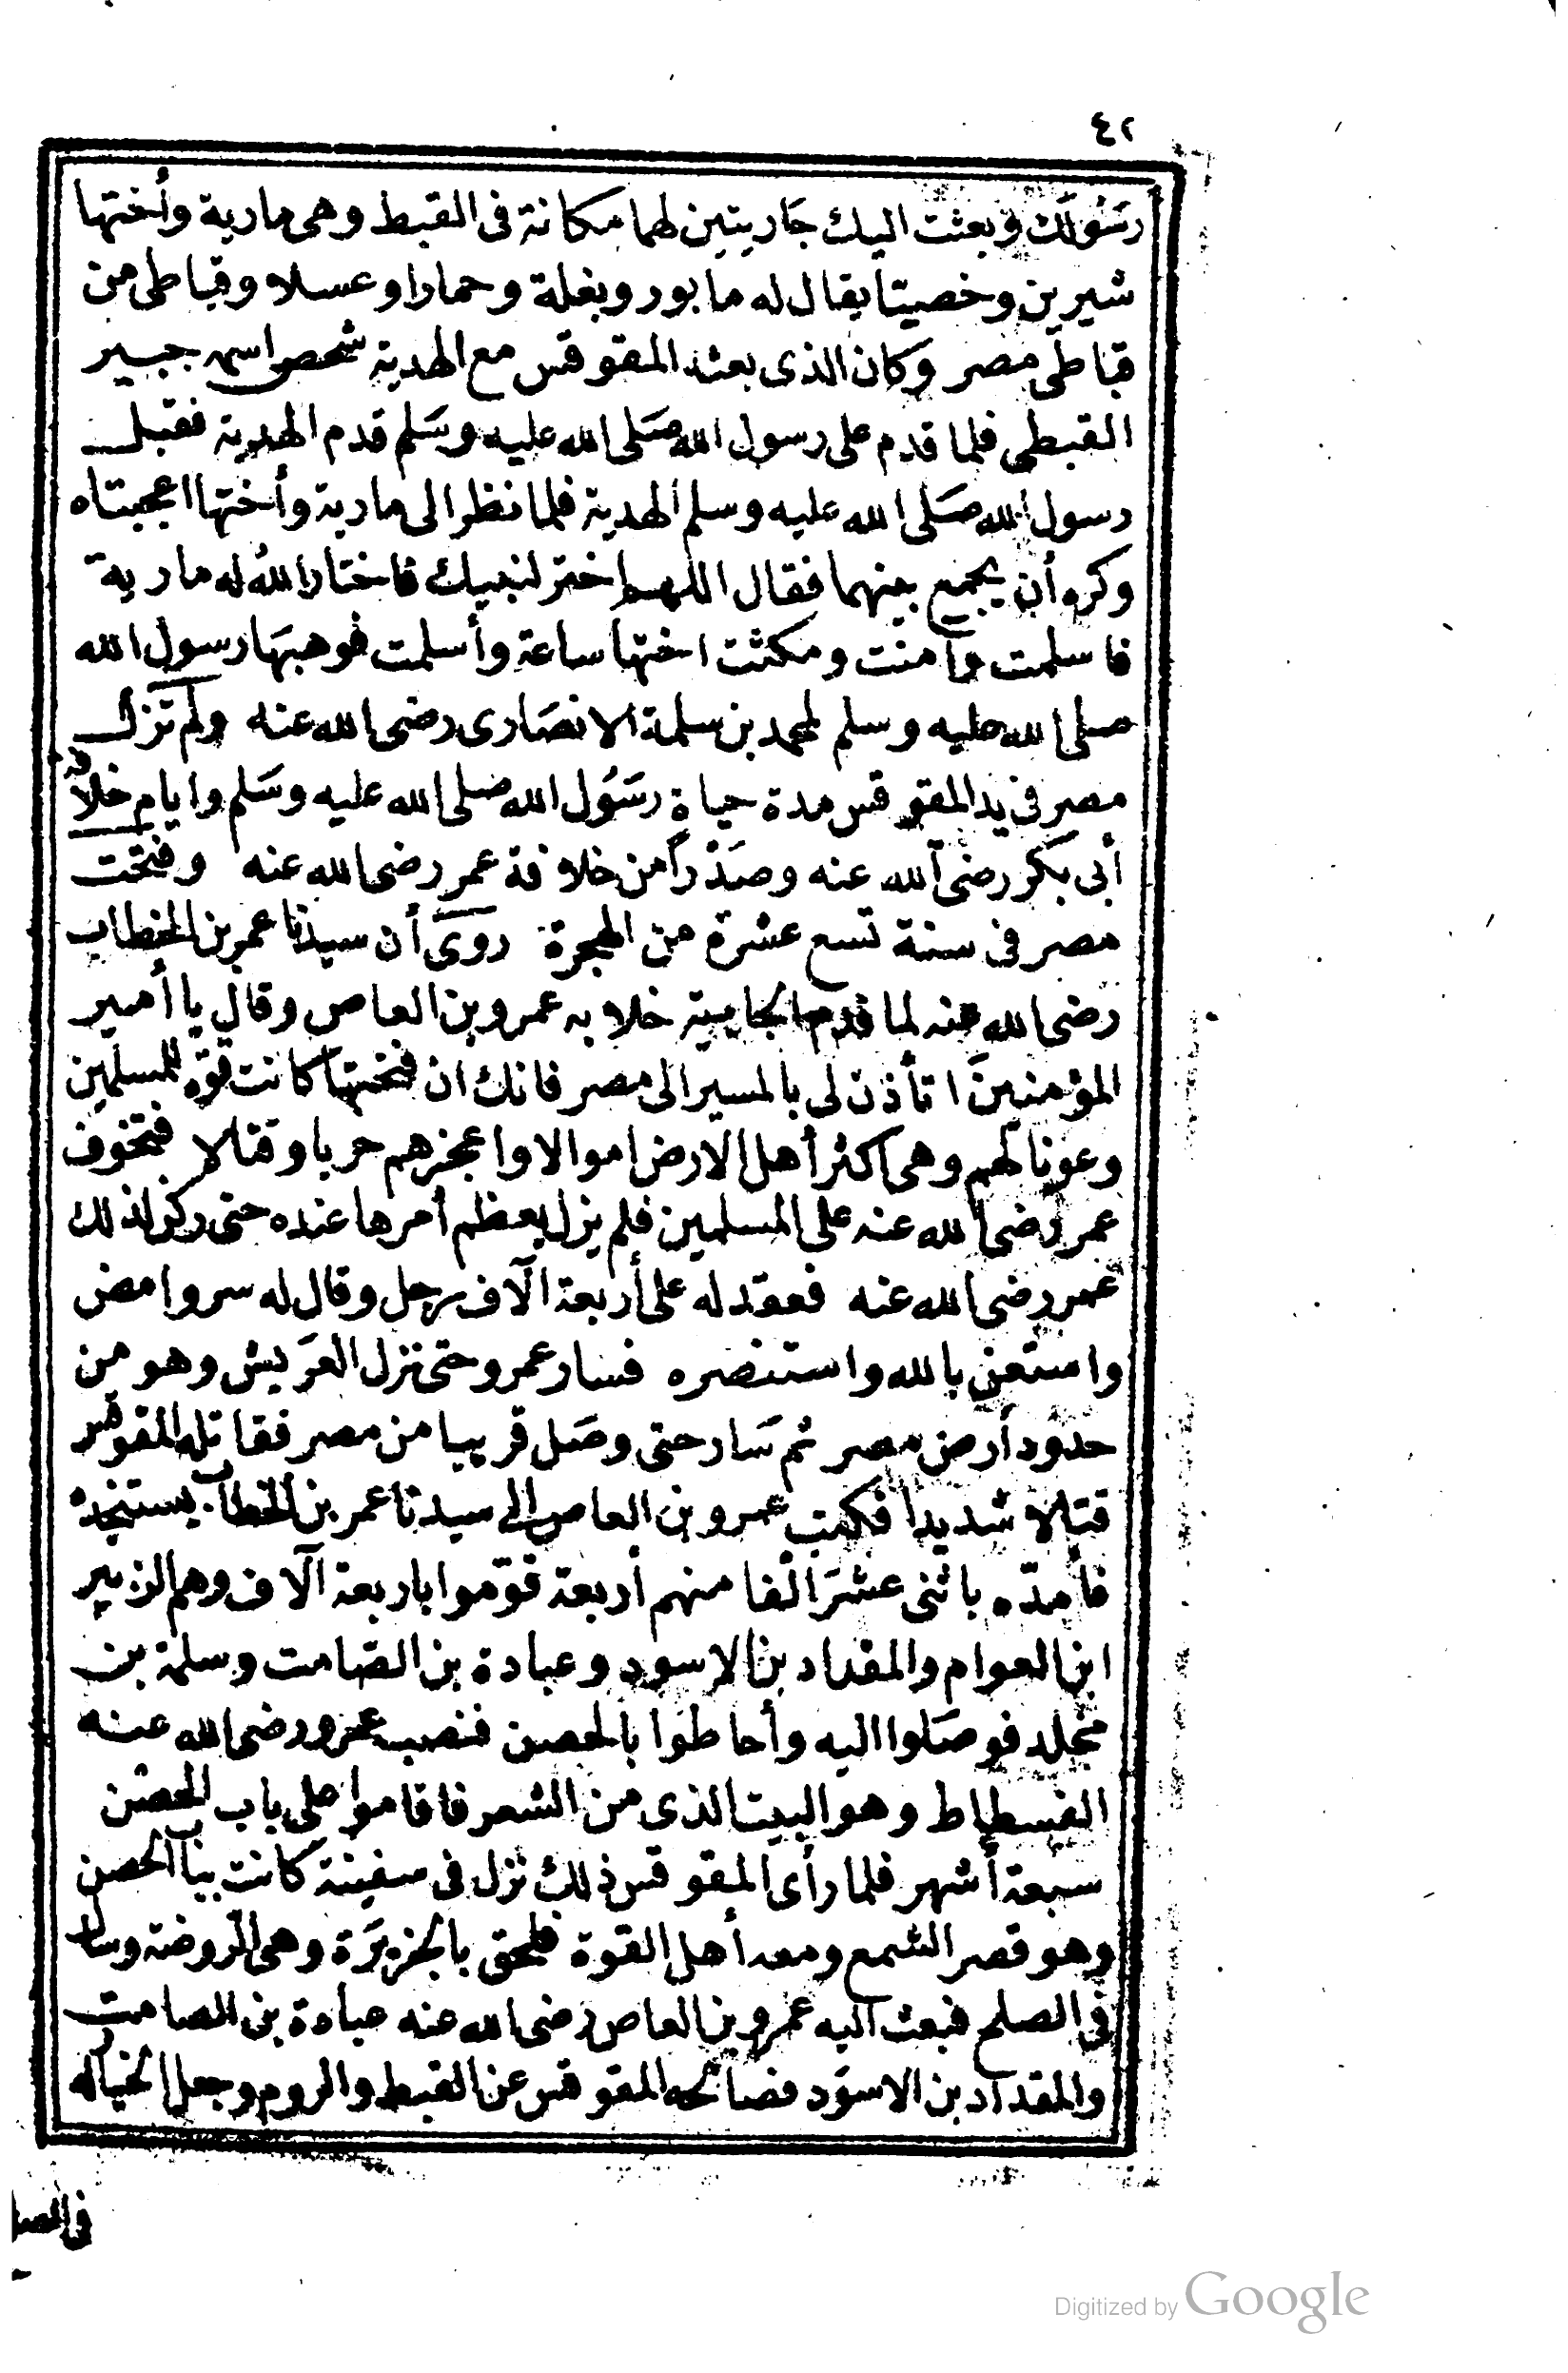 ٤٢
رسولك وبعثت اليك جاريتين لهما مكانة فى القبط وهى مارية وأختها
شيرين وخصيّا يقال له مابور وبغلة وحمارا وعسلا وقباطى من
قباطى مصر وكان الذى بعثه المقوقس مع الهدية شخص اسمه جبير
القبطى فلما قدم على رسول الله صلى الله عليه وسلم قدم الهدية فقبل
رسول الله صلى الله عليه وسلم الهدية فلما نظر الى مارية وأختها اعجبتاه
وكره أن يجمع بينهما فقال اللهم اختر لنبيك فاختار الله له مارية
فاسلمت وآمنت ومكثت اختها ساعة وأسلمت فوهبها رسول الله
صلى الله عليه وسلم لمحمد بن سلمة الانصارى رضى الله عنه ولم تزل
مصر فى يد المقوقس مدة حياة رسول الله صلى الله عليه وسلم وايام خلافة
أبى بكر رضى الله عنه وصدرا من خلافة عمر رضى الله عنه وفتحت
مصر فى سنة تسع عشرة من الهجرة روى أن سيدنا عمر بن الخطاب
رضى الله عنه لما قدم الجابية خلا به عمرو بن العاص وقال يا أمير
المؤمنين اتأذن لى بالمسير الى مصر فانك ان فتحتها كانت قوة للمسلمين
وعونا لهم وهى اكثر أهل الارض اموالا واعجزهم حربا وقتالا فتخوف
عمر رضى الله عنه على المسلمين فلم يزل يعظم أمرها عنده حتى ركن لذلك
عمر رضى الله عنه فعقد له على أربعة آلاف رجل وقال له سر وامض
واستعن بالله واستنصره فسار عمرو حتى نزل العريش وهو من
حدود أرض مصر ثم سار حتى وصل قريبا من مصر فقاتله المقوقس
قتالا شديدا فكتب عمرو بن العاص الى سيدنا عمر بن الخطاب يستنجده
فأمدّه باثنى عشر الفا منهم أربعة قوّموا باربعة آلاف وهم الزبير
ابن العوام والمقداد بن الاسود وعبادة بن الصامت وسلمة بن
مخلد فوصلوا اليه وأحاطوا بالحصن فنصب عمرو رضى الله عنه
الفسطاط وهو البيت الذى من الشعر فاقاموا على باب الحصن
سبعة أشهر فلما رأى المقوقس ذلك نزل فى سفينة كانت بباب الحصن
وهو قصر الشمع ومعه أهل القوة فلحق بالجزيرة وهى الروضة وسأل
فى الصلح فبعث اليه عمرو بن العاص رضى الله عنه عبادة بن الصامت
والمقداد بن الاسود فصالحه المقوقس عن القبط والروم وجعل الخيار له
Digitized by Google